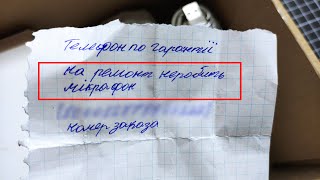 Телефон по гарантії
на ремонт неробить
мікрафон
номер заказа